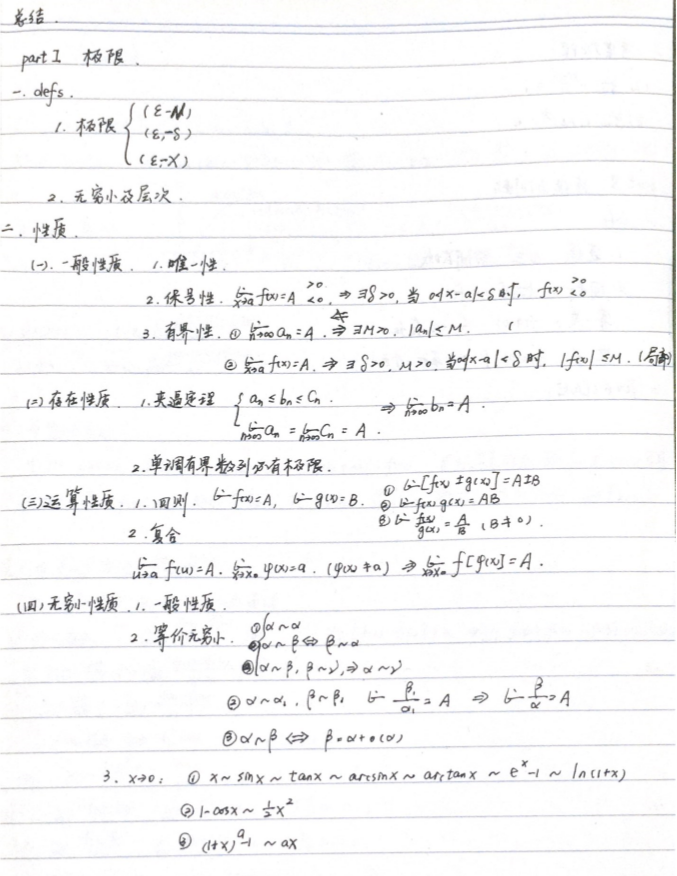 总结.
part I 极限.
一. defs.
1. 极限 { (ε-N)
(ε-δ)
(ε-X)
2. 无穷小及层次.
二. 性质.
(一). 一般性质. 1. 唯一性.
2. 保号性. lim x→a f(x)=A >0 <0. ⇒ ∃δ>0, 当 0<|x-a|<δ时, f(x) >0 <0
3. 有界性. ① lim n→∞ an=A. ⇒ ⇍ ∃M>0. |an|≤M.
② lim x→a f(x)=A. ⇒ ∃δ>0, M>0. 当0<|x-a|<δ时, |f(x)|≤M. (局部)
(二) 存在性质. 1. 夹逼定理 { an≤bn≤Cn. ⇒ lim n→∞ bn=A.
lim n→∞ an = lim n→∞ Cn = A.
2. 单调有界数列必有极限.
(三) 运算性质. 1. 四则. lim f(x)=A, lim g(x)=B. ① lim[f(x)±g(x)]=A±B
② lim f(x)g(x)=AB
③ lim f(x)/g(x) = A/B (B≠0).
2. 复合
lim u→a f(u)=A. lim x→x₀ φ(x)=a. (φ(x)≠a) ⇒ lim x→x₀ f[φ(x)]=A.
(四) 无穷小性质. 1. 一般性质.
2. 等价无穷小. ① { α~α
α~β ⇔ β~α
α~β, β~γ, ⇒ α~γ
② α~α₁, β~β₁ lim β₁/α₁ = A ⇒ lim β/α = A
③ α~β ⇔ β=α+o(α)
3. x→0: ① x~sinx~tanx~arcsinx~arctanx~eˣ-1~ln(1+x)
② 1-cosx~½x²
③ (1+x)ᵃ-1~ax